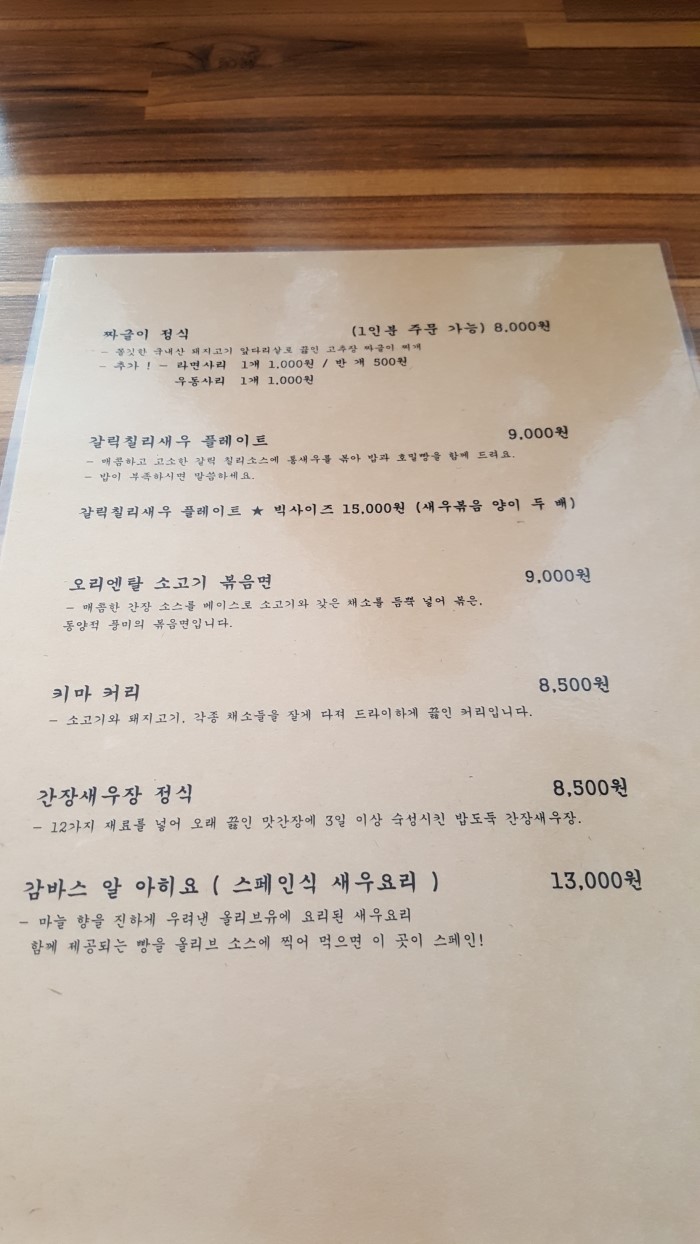 짜글이 정식 (1인분 주문 가능) 8,000원
- 쫄깃한 국내산 돼지고기 앞다리살로 끓인 고추장 짜글이 찌개
- 추가 ! - 라면사리 1개 1,000원 / 반 개 500원
우동사리 1개 1,000원
갈릭칠리새우 플레이트 9,000원
- 매콤하고 고소한 갈릭 칠리소스에 통새우를 볶아 밥과 호밀빵을 함께 드려요.
- 밥이 부족하시면 말씀하세요.
갈릭칠리새우 플레이트 ★ 빅사이즈 15,000원 (새우볶음 양이 두 배)
오리엔탈 소고기 볶음면 9,000원
- 매콤한 간장 소스를 베이스로 소고기와 갖은 채소를 듬뿍 넣어 볶은,
동양적 풍미의 볶음면입니다.
키마 커리 8,500원
- 소고기와 돼지고기, 각종 채소들을 잘게 다져 드라이하게 끓인 커리입니다.
간장새우장 정식 8,500원
- 12가지 재료를 넣어 오래 끓인 맛간장에 3일 이상 숙성시킨 밥도둑 간장새우장.
감바스 알 아히요 ( 스페인식 새우요리 ) 13,000원
- 마늘 향을 진하게 우려낸 올리브유에 요리된 새우요리
함께 제공되는 빵을 올리브 소스에 찍어 먹으면 이 곳이 스페인!